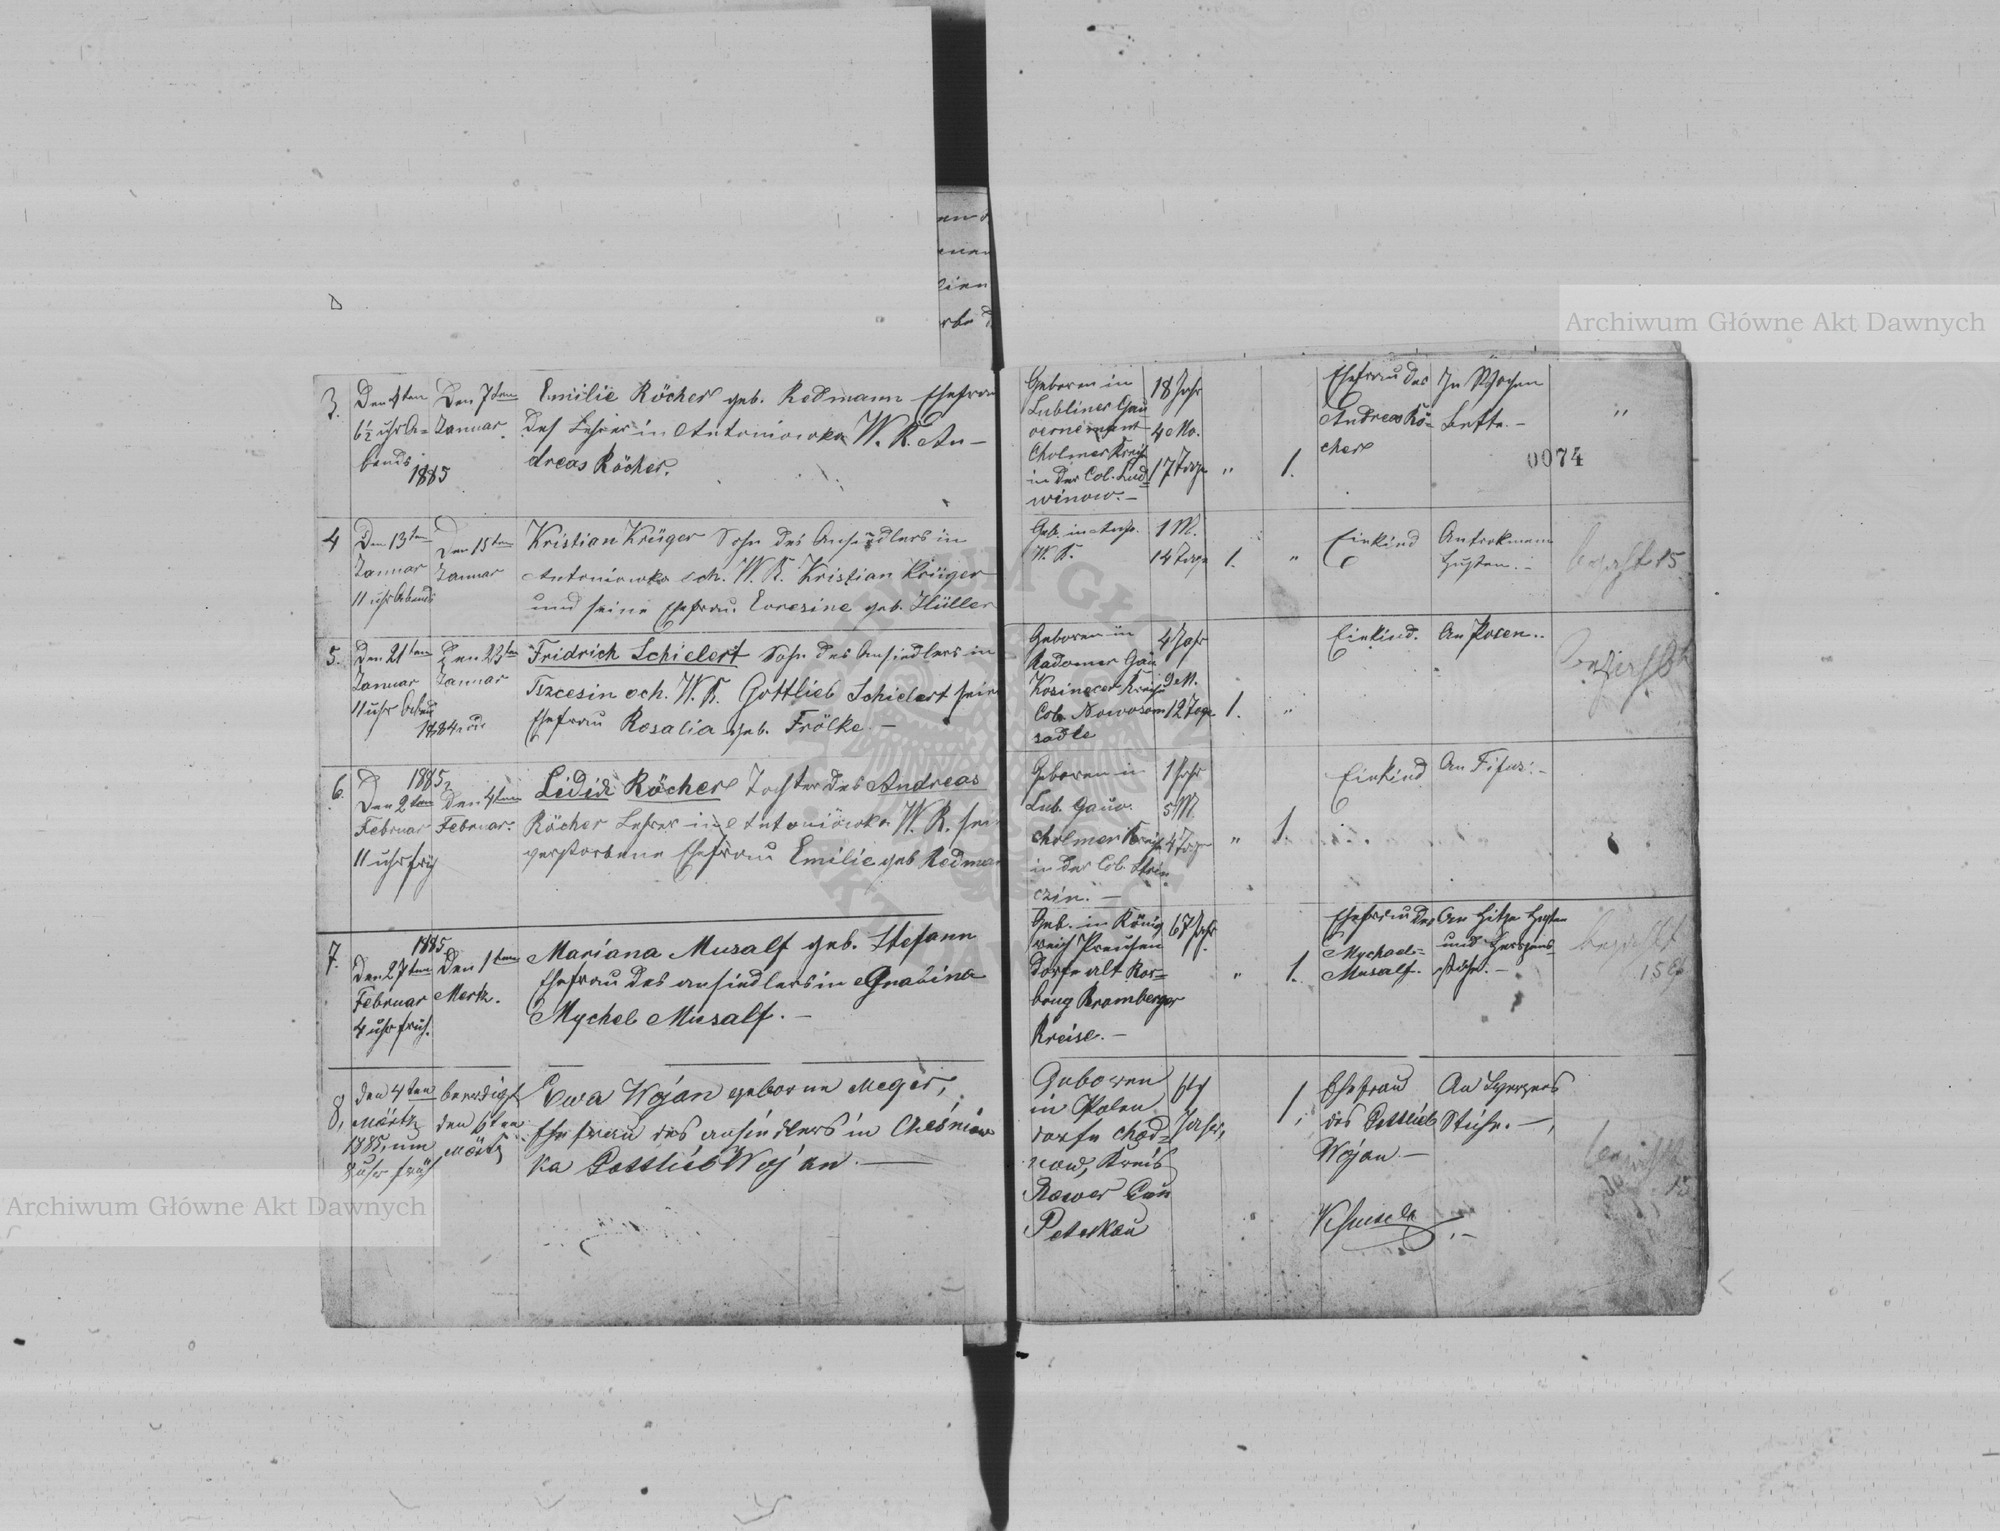 Archiwum Główne Akt Dawnych
3.
Den 4ten
6½ uhr A=
bends
1885
Den 7ten
Januar.
Emilie Röcher geb. Redmann Ehefrau
des Lehrer in Antoniowka W. K. An-
dreas Röcher.
Geboren in
Lubliner Gau
vernement
Cholmer Kreise
in der Col. Lud=
winow.-
18 Jahr
4 Mo.
17 Tage
"
1.
Ehefrau des
Andreas Rö-
cher
In Wochen
Bette.-
"
0074
4
Den 13ten
Januar
11 uhr Abends
Den 15ten
Januar
Kristian Krüger Sohn des Ansiedlers in
Antoniowka W. K. Kristian Krüger
und seine Ehefrau geb. Hüller
Geb. in Anto.
W. K.
1 M.
14 Tage
1.
"
Ein kind
An trokmann
Husten.-
bezahlt 15
5.
Den 21ten
Januar
11 uhr
1884
Den 23ten
Januar
Fridrich Schielert Sohn des Ansiedlers in
W. K. Gottlieb Schielert sein
Ehefrau Rosalia geb. Frölke.-
Geboren in
Radomer Gau
Kosinecer Kreise
Col. Nowosom
sadle
4 Jahr
9 M.
12 Tage
1.
"
Ein kind.
An Pocen..
6.
1885
Den 2ten
Februar
11 uhr früh
Den 4ten
Februar.
Lidide Röcher Tochter des Andreas
Röcher Lehrer in Antoniowka W. K. sein
verstorbene Ehefrau Emilie geb Redman
Geboren in
Lub. Gauv.
Cholmer Kreise
in der Col.
czin.-
1 Jahr
5 M
4 Tage
"
1.
Ein kind
An
7.
1885
Den 27ten
Februar
4 uhr früh.
Den 1ten
Mertz.
Mariana Musalf geb. Stefann
Ehefrau des ansiedlers in Grabina
Mychel Musalf.-
Geb. in König
reich Preusen
Dorfe alt
Bramberger
Kreise.-
67 Jahr.
"
1.
Ehefrau des
Mychael=
Musalf.
An Hitze Husten
und Herzens
bezahlt
15
8,
den 4ten
Märtz
1885, um
8 uhr früh
beerdigt
den 6ten
Märtz
Ewa Wojan geborne Meger,
Ehefrau des ansiedlers in Chesniow
ka Gottlieb Wojan.-
Geboren
in Polen
dorfe Chod=
, Kreis
Gau
Peterkau
Jahr,
1.
Ehefrau
des Gottlieb
Wojan.-
An Herzens
Stiche.-
15
Archiwum Główne Akt Dawnych